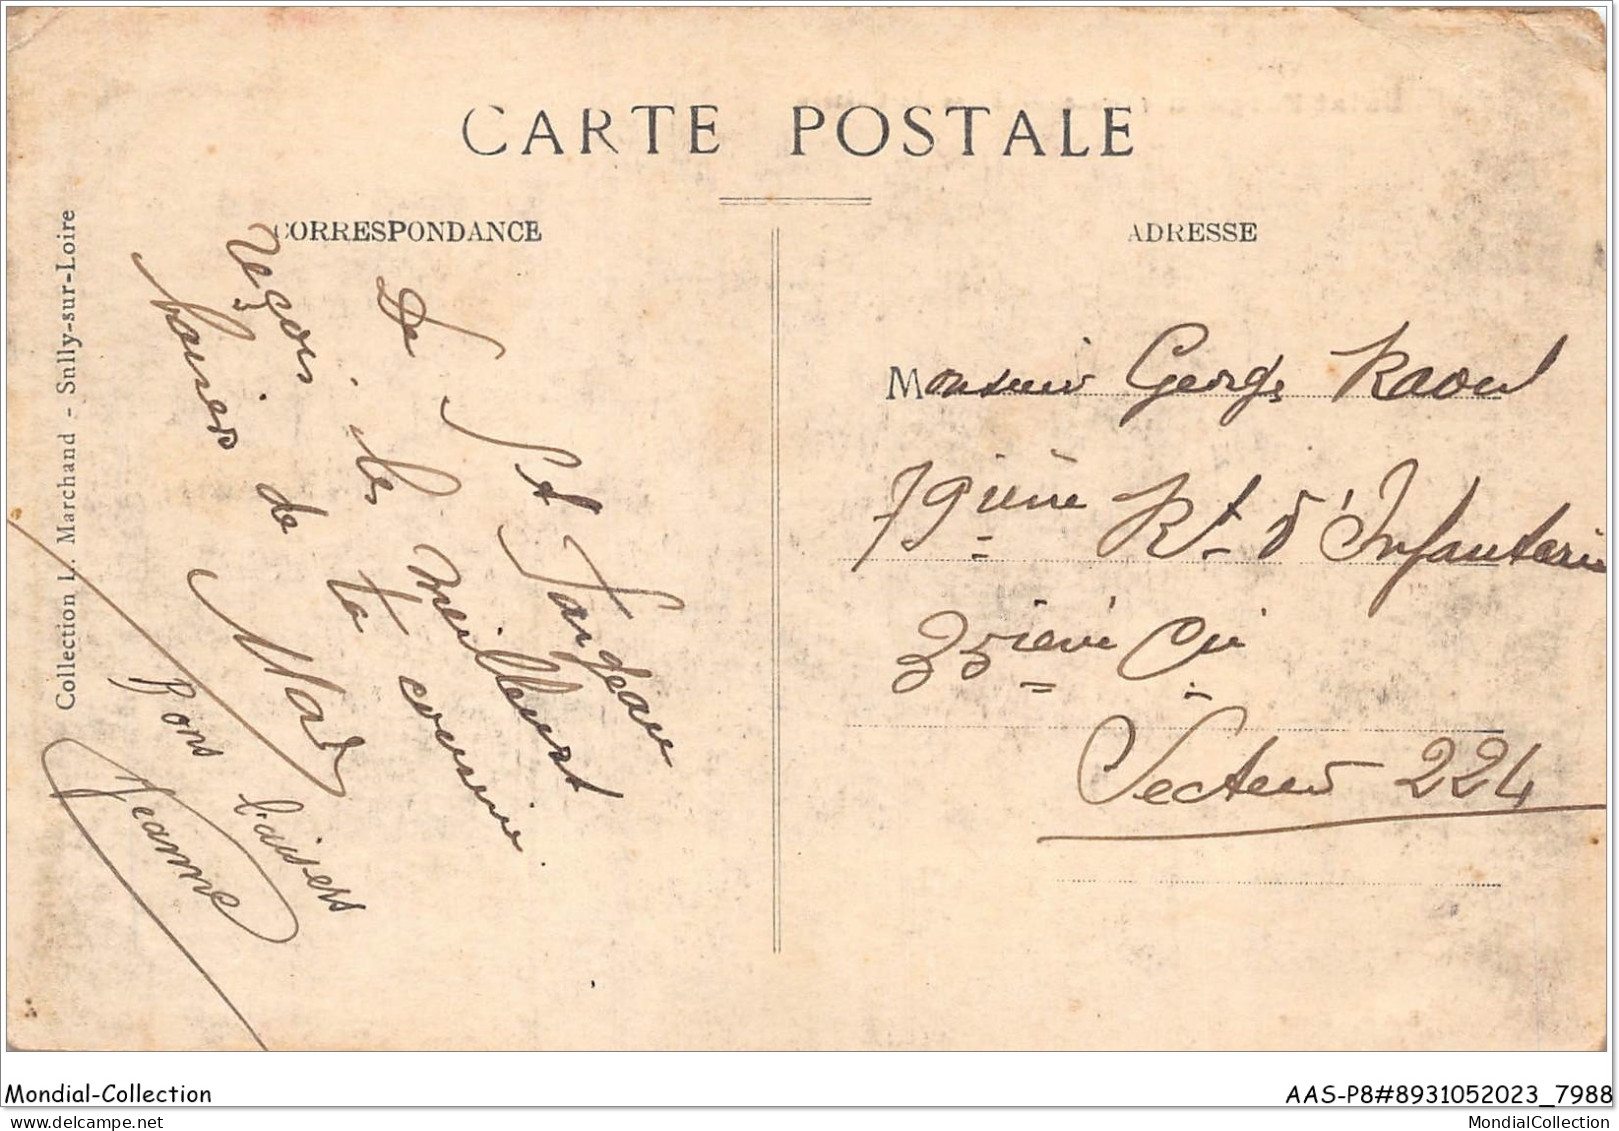 CARTE POSTALE
CORRESPONDANCE
ADRESSE
Collection L. Marchand - Sully-sur-Loire
De St Fargeau
reçois les meilleurs
baisers de ta cousine
Mad
Bons baisers
Jeanne
Monsieur George Raoul
79ième Rt d'Infanterie
35ième Cie
Secteur 224
Mondial-Collection
AAS-P8#8931052023_7988
www.mondialcollection.com
MondialCollection